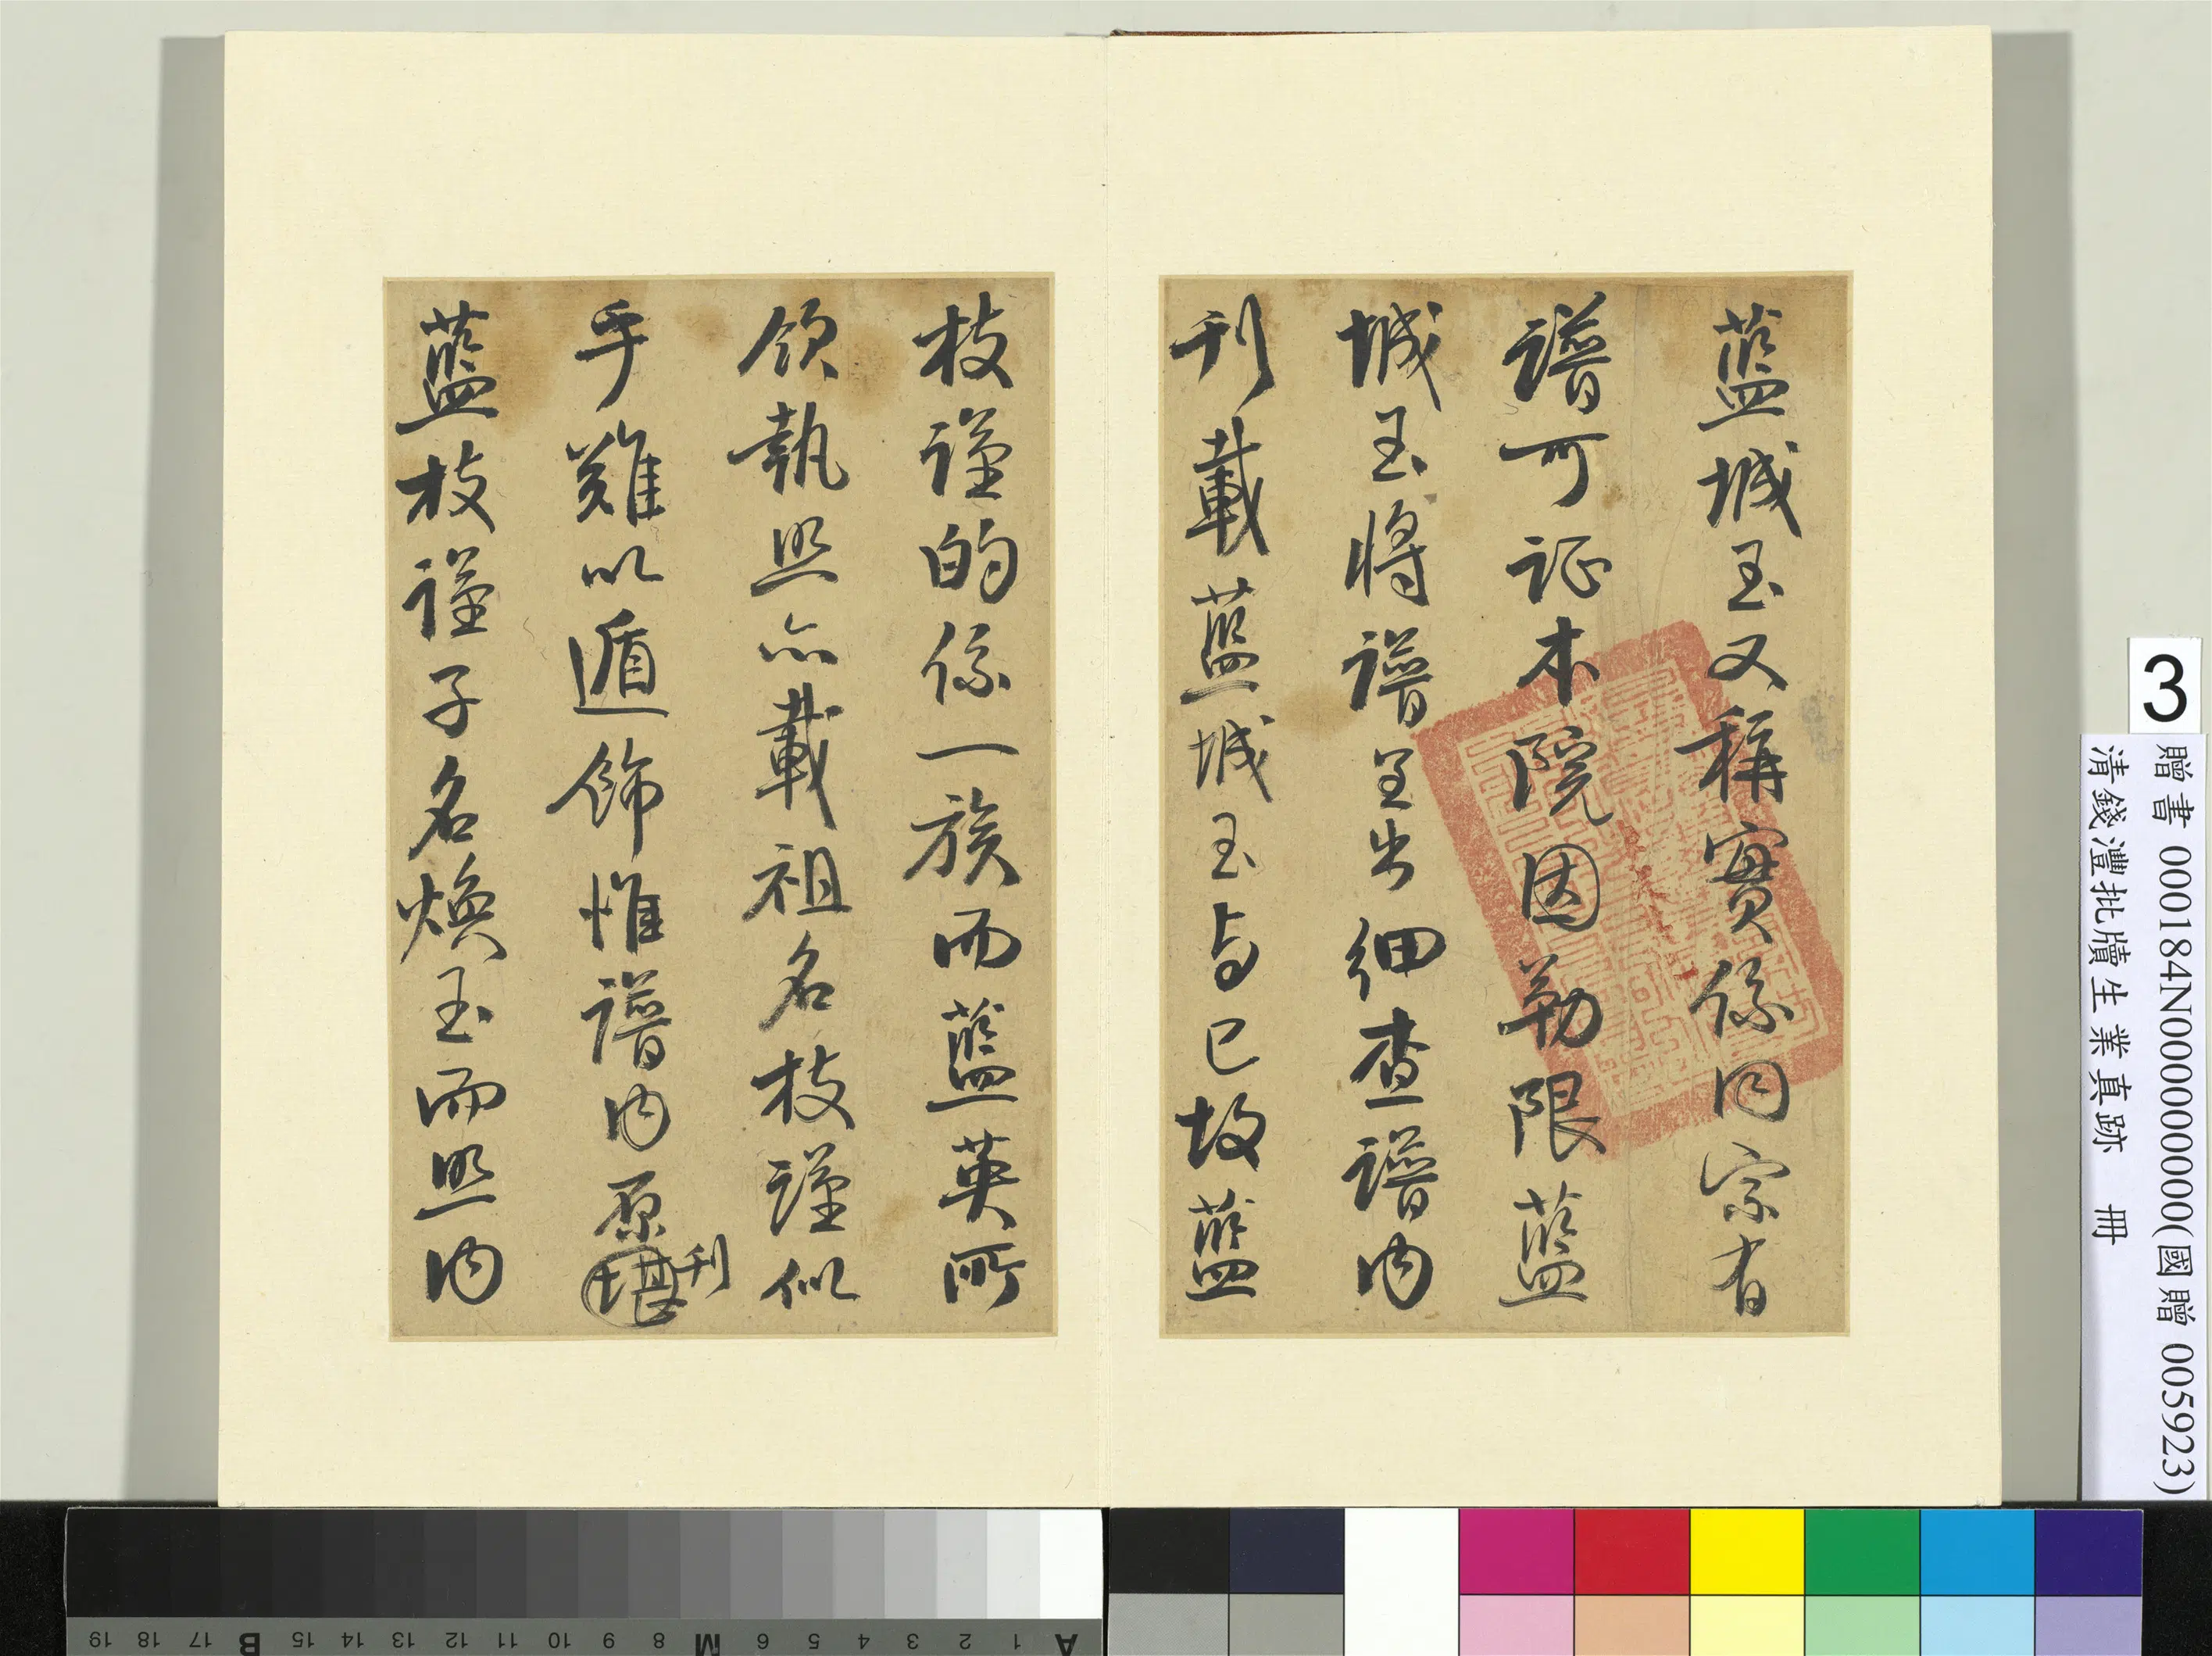 藍城玉又稱實係同宗有
譜可证本院因勒限藍
城玉將譜呈出细查譜内
刋載藍城玉与已故藍
枝謹的係一族而藍英所
領執照亦載祖名枝謹似
乎難以遁飾惟譜内原堪刋
藍枝謹子名煥玉而照内
3
贈書 000184N000000000(國贈 005923)
清錢灃批牘生業真跡 冊
A 1 2 3 4 5 6 M 8 9 10 11 12 13 14 15 B 17 18 19